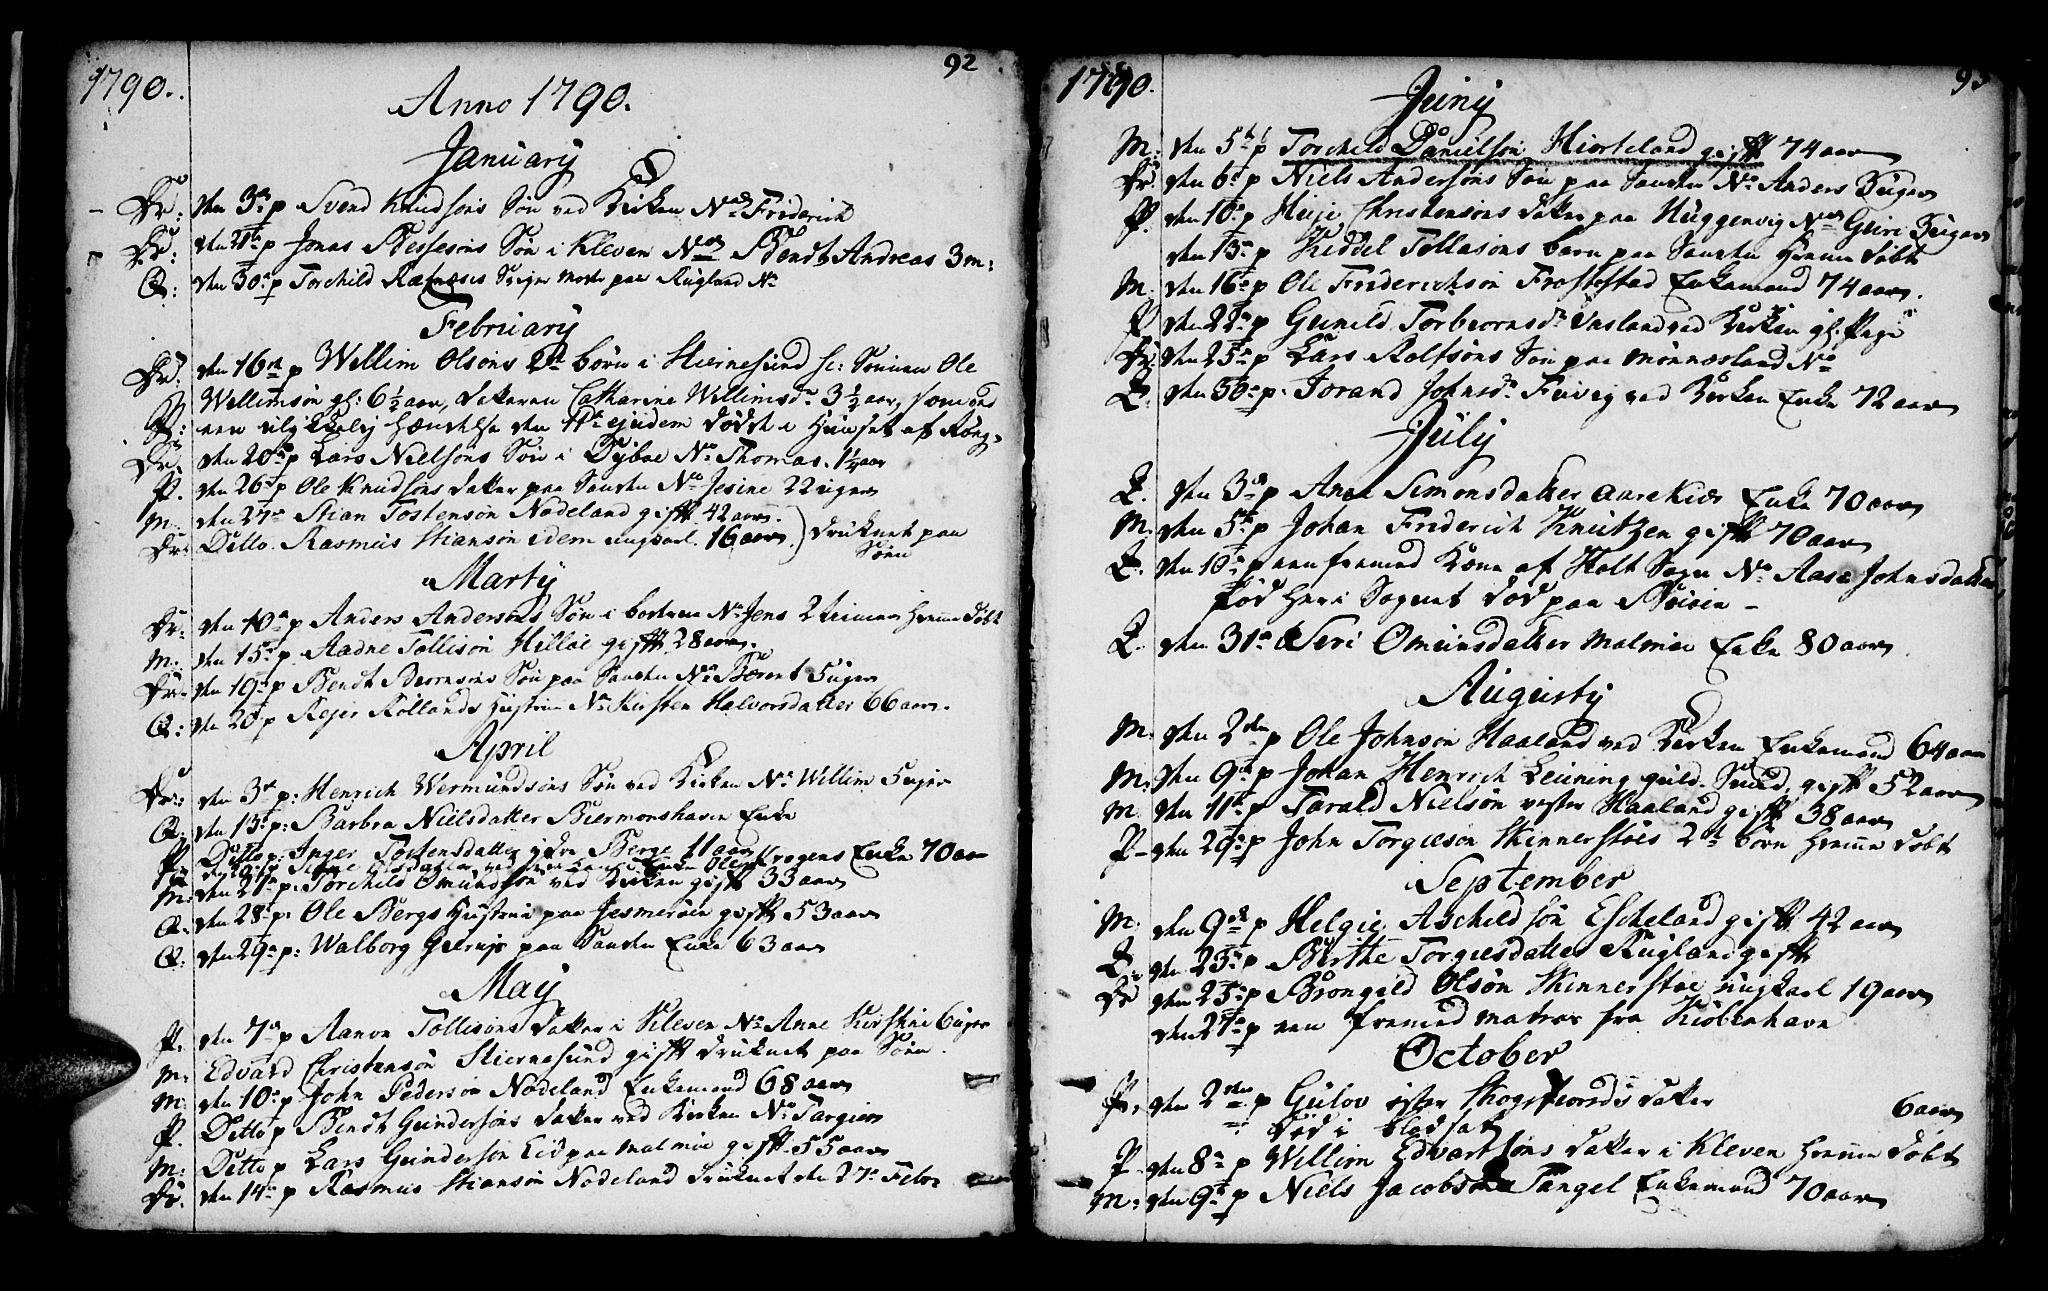 1790.
92
Anno 1790.
January
Dr: den 3die p Svend Knudsøns Søn ved Kirken Navl. Friderich
Dr: den 21de p Jonas Bessesøns Søn i Kleven Navl. Bendt Andreas 3 m:
Q: den 30te p Torchild Svigermoder paa Rugland No
February
Dr: den 16de p Wellim Olsøns 2de børn i Hiernesund sc: Sønnen Ole
Wellimsøn gl: 6½ aar, datteren Catharine Wellimsdr 3½ aar, som ved
P: een ulykkelig hændelse den 11te ejusdem døde i Huuset af Røg
Dr: den 20de p Lars Nielsøns Søn i Dybøe No Thomas. 1¼ aar
P. den 26de p Ole Knudsøns datter paa Sanden No Jesine 22 uger
M. den 27de Stian Tostensøn Nodeland gift 42 aar.
Dr: Ditto. Rasmus Stiansøn idem ungkarl. 16 aar.) druknet paa
Søen
Martij
Dr: den 10de p Anders Andersøns Søn i No Jens 2 timer hjemme døbt
M: den 15de p. Aadne Tollisøn Hilløe gift 28 aar.
Dr: den 19de p Bendt Beornsøns Søn paa Sanden No Berent 5 uger
Q: den 20 p Rejer Røllands Hustrue No Kirsten Halvorsdatter 66 aar.
April
Dr: den 3de p: Henrich Wermundsøns Søn ved Kirken No Wellim 5 uger
Q: den 13de p: Barbra Nielsdatter Biermonshavn Enke
P: Ditto p: Inger Tostensdatter ydre Berge 11 aar
Enke Ole Krogens Enke 70 aar
M: den 27de p: Torchild Omundsøn ved Kirken gift 33 aar
Q: den 28 p: Ole Bergs Hustrue paa Jesmerøen gift 53 aar
Q: den 29de p: Walborg paa Sanden Enke 63 aar
May
P. den 7de p Aanon Tollisøns datter i Kleven No Anne Kirstine 6 uger
M: Edvard Christensøn Stiernesund gift druknet paa Søen.
M: den 10de p John Pedersøn Nodeland Enkemand 68 aar
P. Ditto p Bendt Gundersøns datter ved Kirken No Targier
M: Ditto p Lars Gundersøn Eid paa Malmøe gift 55 aar
Dr. den 14de p Rasmus Stiansøn Nodeland druknet den 27de Febr
1790.
93
Junij
M: den 5te p Torchild Danielsøn Hiorteland gift 74 aar
Dr. den 6te p Niels Andersøns Søn paa Sanden No Anders 3 uger
P. den 10de p Huje Christensøns datter paa Huggenvig Navl Guri 3 uger
den 13de p Kiddel Tollasøns barn paa Sanden hjemme døbt
M. den 16de p Ole Friderichsøn Frostestad Enkemand 74 aar.
P. den 22de p Gunild Torbeornsdr Vasland ved Kirken gl: Pige
Dr: den 25de p Lars Rolfsøns Søn paa Mønnesland No
Q: den 30te p: Jorand Johnsdr Fuvig ved Kirken Enke 72 aar
July
Q. den 3die p Ane Simonsdatter Aarekier Enke 70 aar
M. den 5te p Johan Friderich Knutzen gift 70 aar
Q. den 10de p een fremmed Kone af Holt Sogn No Aase Johnsdatter
fød her i Sognet død paa
Q. den 31te Seri Omundsdatter Malmøe Enke 80 aar
Augusty
M. den 2den p Ole Johnsøn Haaland ved Kirken Enkemand 64 aar
M: den 9de p Johan Henrich Leuning guld Smed. gift 52 aar
M den 11te p Tarald Nielsøn vester Haaland gift 38 aar
P- den 29de p John Torgiesøn Skinnerstøes 2de børn hjemme døbt
September
M: den 9de p Helgie Aschildsøn Eskeland gift 42 aar
Q. den 23de p Birthe Torgiusdatter Rugland gift
Dr den 25de p Brongild Olsøn Skinnerstøe ungkarl 19 aar
den 27de p een fremmed matros fra Kiøbenhavn
October
P: den 2den p Gulov øster Skogsfiords datter
6 aar
død i blodsot
P. den 8de p Wellim Edvartsøns datter i Kleven hjemme døbt
M: den 9de p Niels Jacobsøn Tangel Enkemand 70 aar